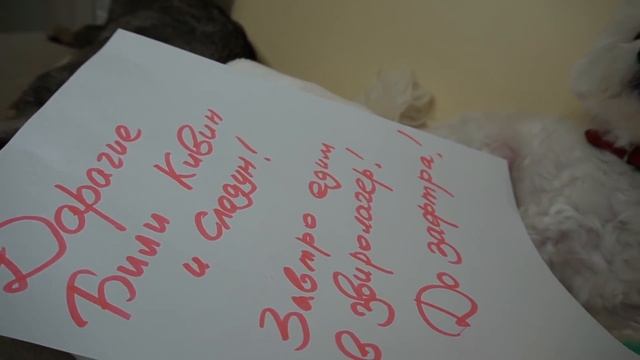 Дарагие
Били Кивин
и Следун!
Завтро едим
в звиролагер!
До зафтра!